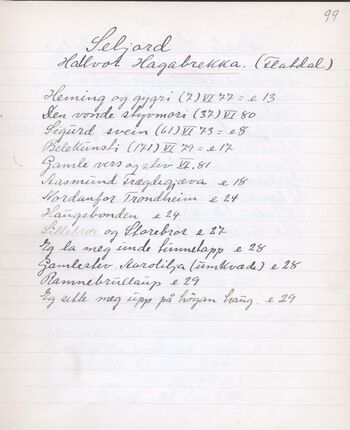 99
Seljord
Hallvor Hagabrekka. (Flatdal)
Heming og gygri (7) VI 77 = e 13
Den vonde styvmori (37) VI 80
Sigurd svein (61) VI 73 = e 8
Belekunsti (171) VI 79 = e 17
Gamle vers og stev VI. 81
Aasmund Fregdegjæva e 18
Nordanfor Trondheim e 24
Haugebonden e 24
og Storebror e 27
Eg la meg unde tunnetapp e 28
Gamlestev. Aarolilja (umkvæde) e 28
Ramnebrullaup e 29
Eg sette meg upp på högan haug. e 29